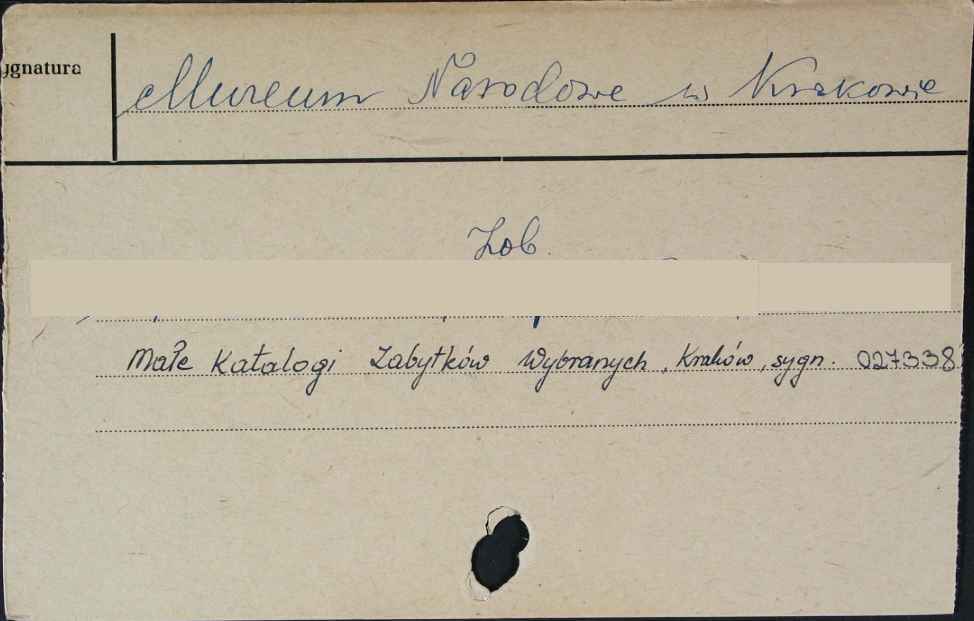 ygnatura
Muzeum Narodowe w Krakowie
Zob.
Małe Katalogi Zabytków Wybranych, Kraków, sygn. 027338